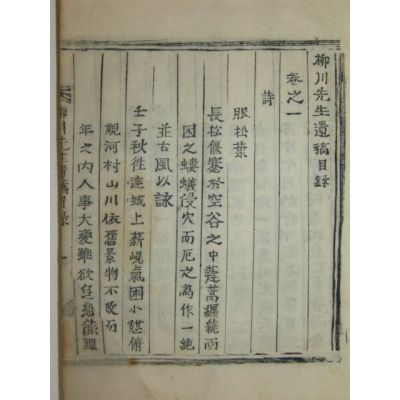 柳川先生遺稿目錄
卷之一
詩
服松葉
長松偃蹇於空谷之中蓬蒿纏繞而
因之螻蟻侵穴而厄之爲作一絶
莊古風以詠
壬子秋徃達城上薪峴氣困小憇俯
視河村山川依舊景物不改而
年之內人事大變雖欲
柳川先生遺稿目錄 一